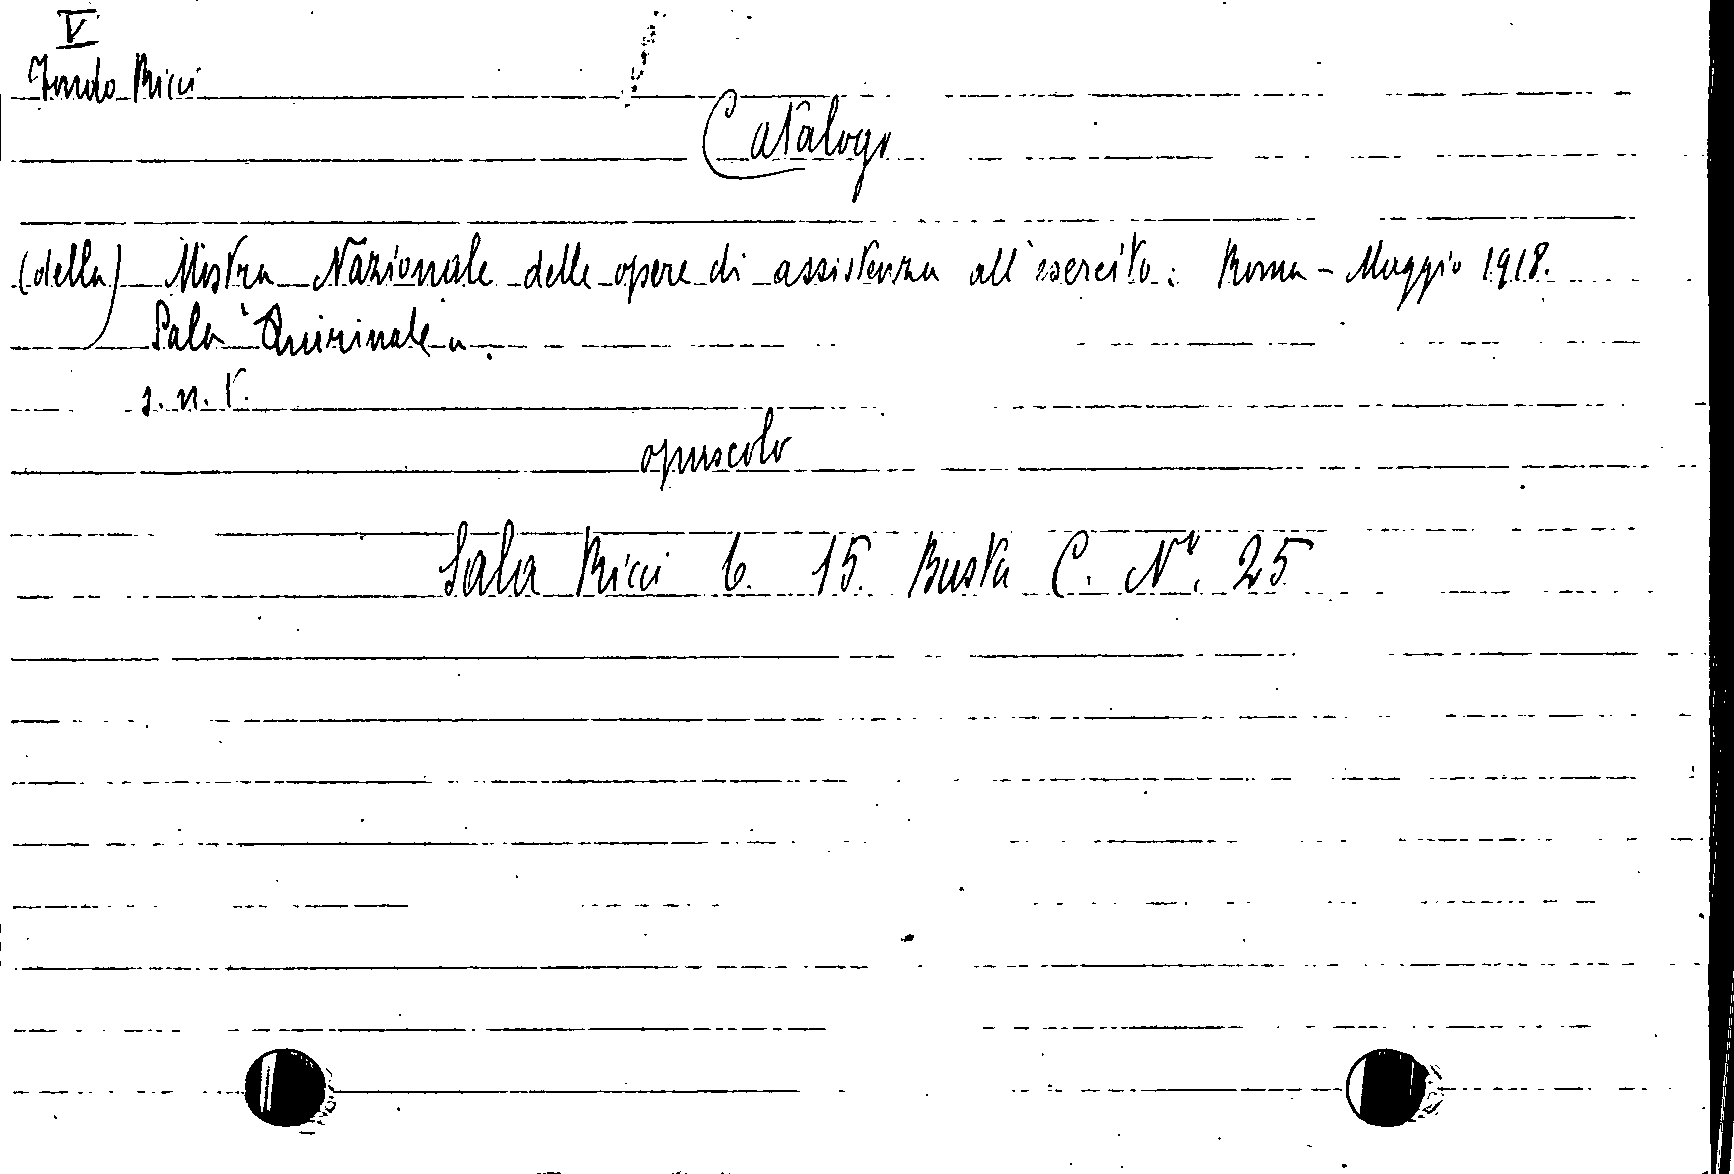 V
Fondo Ricci
Catalogo
(della) Mostra Nazionale delle opere di assistenza all'esercito: Roma - Maggio 1918.
Sala "Quirinale".
s. n. t.
opuscolo
Sala Ricci 6. 15. Busta C. No. 25